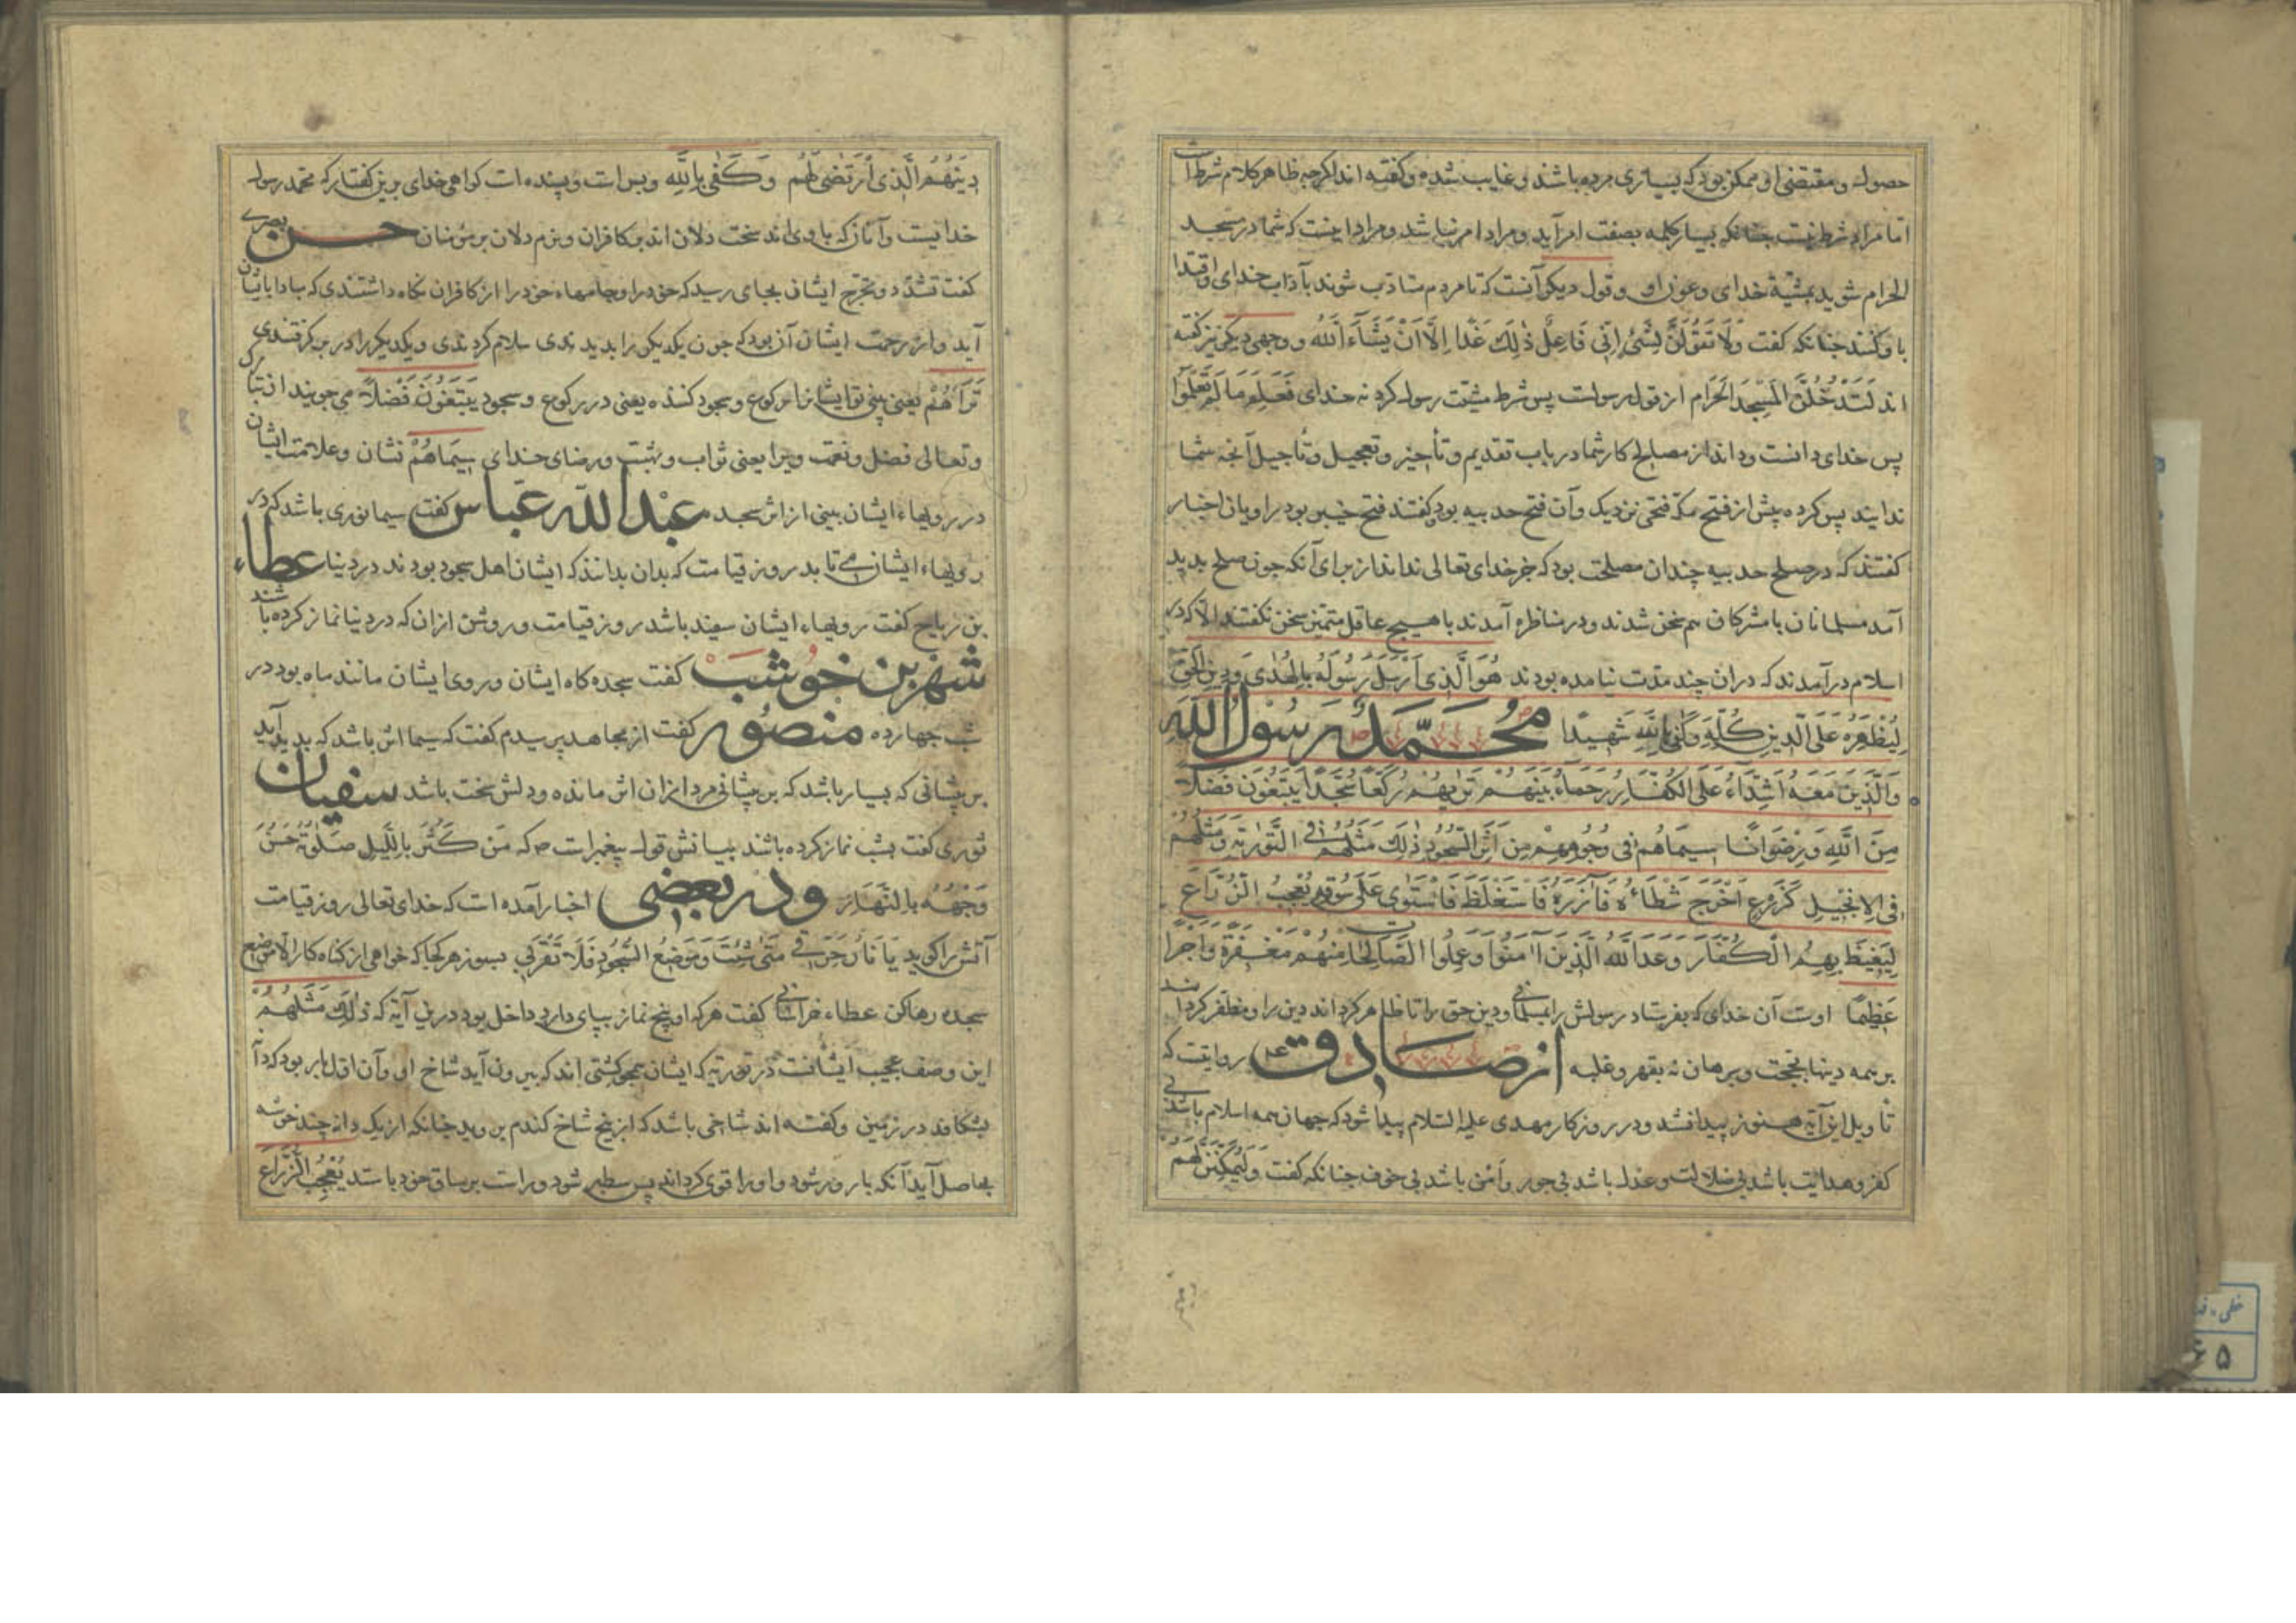 حصول و مقتضی او ممکن بود که بسیاری مرده باشند و غایب شده و گفته اند اگرچه ظاهر کلام شرطست
اما مراد شرط نیست چنانکه بسیار کلمه بصفت امر آید و مراد امر نباشد و مراد اینست که شما در مسجد
الحرام شوید بمشیة خدای و عون او و قول دیگر آنست که تا مردم متادب شوند بآداب خدای و اقتدا
باو کنند چنانکه گفت وَلَا تَقُولَنَّ لِشَیْءٍ اِنّی فَاعِلٌ ذٰلِکَ غَدًا اِلَّا اَنْ یَشَاءَ اللهُ و وجهی دیگر نیز گفته
اند لَتَدْخُلُنَّ الْمَسْجِدَ الْحَرَامَ از قول رسولست پس شرط مشیت رسول کرد نه خدای فَعَلِمَ مَا لَمْ تَعْلَمُوا
پس خدای دانست و داند از مصالح کار شما در باب تقدیم و تأخیر و تعجیل و تأجیل آنچه شما
ندانید پس کرد پیش از فتح مکه فتحی نزدیک و آن فتح حدیبیه بود و گفتند فتح خیبر بود راویان اخبار
گفتند که در صلح حدیبیه چندان مصلحت بود که جز خدای تعالی نداند از برای آنکه چون صلح بدید
آمد مسلمانان با مشرکان هم سخن شدند و در مناظره آمدند با هیچ عاقل متمیز سخن نگفتند الا که در
اسلام در آمدند که در آن چند مدت نیامده بودند هُوَ الَّذِی اَرْسَلَ رَسُولَهُ بِالْهُدٰی وَدِینِ الْحَقِّ
لِیُظْهِرَهُ عَلَی الدِّینِ کُلِّهِ وَکَفٰی بِاللهِ شَهِیدًا مُحَمَّدٌ رَسُولُ اللهِ
وَالَّذِینَ مَعَهُ اَشِدَّاءُ عَلَی الْکُفَّارِ رُحَمَاءُ بَیْنَهُمْ تَرٰیهُمْ رُکَّعًا سُجَّدًا یَبْتَغُونَ فَضْلًا
مِنَ اللهِ وَرِضْوَانًا سِیمَاهُمْ فِی وُجُوهِهِمْ مِنْ اَثَرِ السُّجُودِ ذٰلِکَ مَثَلُهُمْ فِی التَّوْرٰیةِ وَمَثَلُهُمْ
فِی الْاِنْجِیلِ کَزَرْعٍ اَخْرَجَ شَطْأَهُ فَآزَرَهُ فَاسْتَغْلَظَ فَاسْتَوٰی عَلٰی سُوقِهِ یُعْجِبُ الزُّرَّاعَ
لِیَغِیظَ بِهِمُ الْکُفَّارَ وَعَدَ اللهُ الَّذِینَ آمَنُوا وَعَمِلُوا الصَّالِحَاتِ مِنْهُمْ مَغْفِرَةً وَاَجْرًا
عَظِیمًا اوست آن خدای که بفرستاد رسولش را بمسلمانی و دین حق را تا ظاهر گرداند دین را و مظفر گرداند
بر همه دینها بحجت و برهان نه بقهر و غلبه از صادق ع روایتست که
تأویل این آیه هنوز پیدا نشد و در روزگار مهدی علیه السلام پیدا شود که جهان همه اسلام باشد بی
کفر و هدایت باشد بی ضلالت و عدل باشد بی جور و امن باشد بی خوف چنانکه گفت وَلَیُمَکِّنَنَّ لَهُمْ
دِینَهُمُ الَّذِی ارْتَضٰی لَهُمْ وَکَفٰی بِاللهِ و بس است و پسنده است گواهی خدای برین گفتار که محمد رسول
خدایست و آنان که با وی اند سخت دلان اند بر کافران و نرم دلان بر مؤمنان حسن بصری
گفت تشدد و تحرج ایشان بجای رسید که خود را و جامهاء خود را از کافران نگاه داشتندی که مبادا بایشان
آید و از رحمت ایشان آن بود که چون یکدیگر را بدیدندی سلام کردندی و یکدیگر را در بر گرفتندی
تَرَاهُمْ یعنی بینی تو ایشانرا رکوع و سجود کننده یعنی در رکوع و سجود یَبْتَغُونَ فَضْلًا می جویند از تبارک
و تعالی فضل و نعمت ویرا یعنی ثواب و بهشت و رضای خدای سِیمَاهُمْ نشان و علامت ایشان
در رویهاء ایشان بینی از اثر سجده عبدالله عباس گفت سیما نوری باشد که در
رویهاء ایشان می تابد روز قیامت که بدان بدانند که ایشان اهل سجود بودند در دنیا عطاء
بن رباح گفت رویهاء ایشان سفید باشد روز قیامت و روشن از آن که در دنیا نماز کرده باشند
شهر بن خوشب گفت سجده گاه ایشان و روی ایشان مانند ماه بود در
شب چهارده منصور گفت از مجاهد پرسیدم گفت که سیما اثر باشد که پدید آید
بر پیشانی که بسیار باشد که بر پیشانی مرد از آن اثر مانده و دلش سخت باشد سفیان
ثوری گفت بشب نماز کرده باشند بیانش قول پیغمبرست ص که مَن کَثُرَ بِاللَّیلِ صَلٰوتُهُ حَسُنَ
وَجْهُهُ بِالنَّهَارِ و در بعضی اخبار آمده است که خدای تعالی روز قیامت
آتش را گوید یَا نَارُ حَرِّقی مَتٰی شِئْتِ وَمَوضِعَ السُّجُودِ فَلَا تَقْرَبِی بسوز هر کجا که خواهی از گناه کار الا موضع
سجده رها کن عطاء خراسانی گفت هر که او پنج نماز بپای دارد داخل بود درین آیه که ذٰلِکَ مَثَلُهُمْ
این وصف عجیب ایشانست در توریة که ایشان همچو کشتی اند که بیرون آید شاخ او و آن اول بار بود که دانه
بشکافد در زمین و گفته اند شاخی باشد که از بیخ شاخ گندم بر روید چنانکه از یک دانه چند خوشه
بحاصل آید آنکه بارور شود و او را قوی گرداند پس سطبر شود و راست بر ساق خود باستد یُعْجِبُ الزُّرَّاعَ
خطی
۵